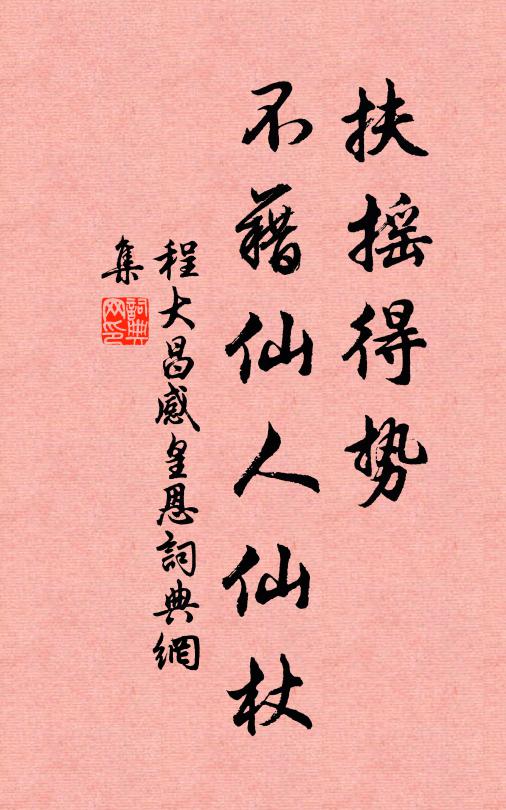 扶摇得势
不藉仙人仙杖
程大昌感皇恩詞典網
集
詞典網印